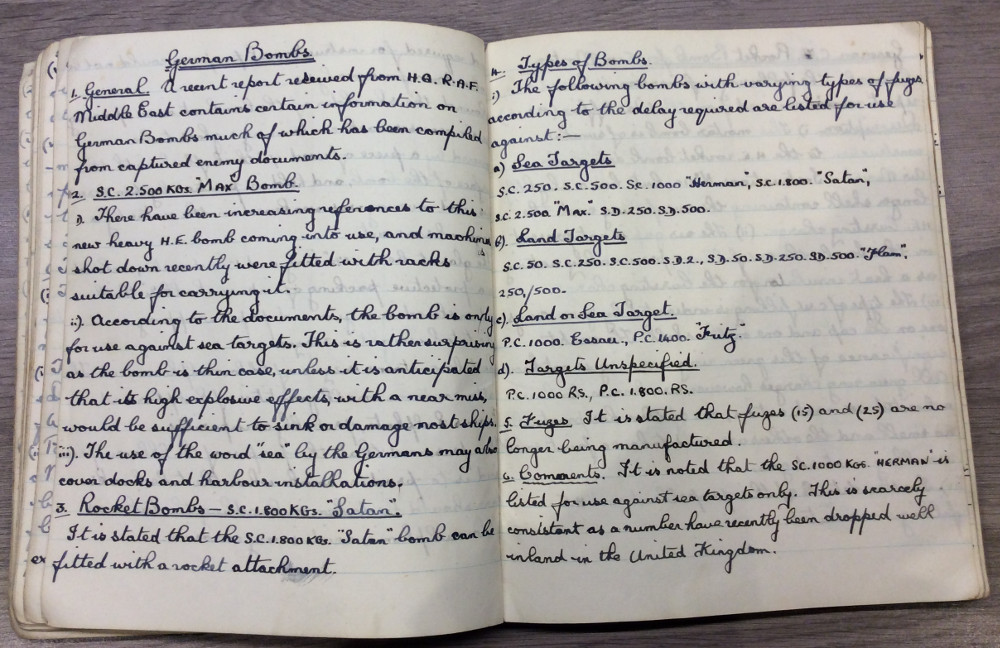 German Bombs.
1. General. A recent report received from H.Q. R.A.F.
Middle East contains certain information on
German Bombs much of which has been compiled
from captured enemy documents.
2. S.C. 2.500 KGs. "Max" Bomb.
i). There have been increasing references to this
new heavy H.E. bomb coming into use, and machines
shot down recently were fitted with racks
suitable for carrying it.
ii). According to the documents, the bomb is only
for use against sea targets. This is rather surprising
as the bomb is thin case, unless it is anticipated
that its high explosive effects, with a near miss,
would be sufficient to sink or damage most ships.
iii). The use of the word "sea" by the Germans may also
cover docks and harbour installations.
3. Rocket Bombs – S.C. 1.800 KGs. "Satan".
It is stated that the S.C. 1.800 KGs. "Satan" bomb can be
fitted with a rocket attachment.
4. Types of Bombs.
i) The following bombs with varying types of fuzes
according to the delay required are listed for use
against:—
a) Sea Targets
S.C. 250. S.C. 500. Sc. 1000 "Herman", S.C. 1.800. "Satan",
S.C. 2.500 "Max." S.D. 250. S.D. 500.
b). Land Targets
S.C. 50. S.C. 250. S.C. 500. S.D. 2., S.D. 50. S.D. 250. S.D. 500. "Flam",
250,/500.
c). Land or Sea Target.
P.C. 1000. Essaci., P.C. 1400. "Fritz".
d). Targets Unspecified.
P.C. 1000 RS., P.C. 1.800. RS.
5. Fuzes. It is stated that fuzes (15) and (25) are no
longer being manufactured.
6. Comments. It is noted that the S.C. 1000 KGs. "HERMAN" is
listed for use against sea targets only. This is scarcely
consistent as a number have recently been dropped well
inland in the United Kingdom.